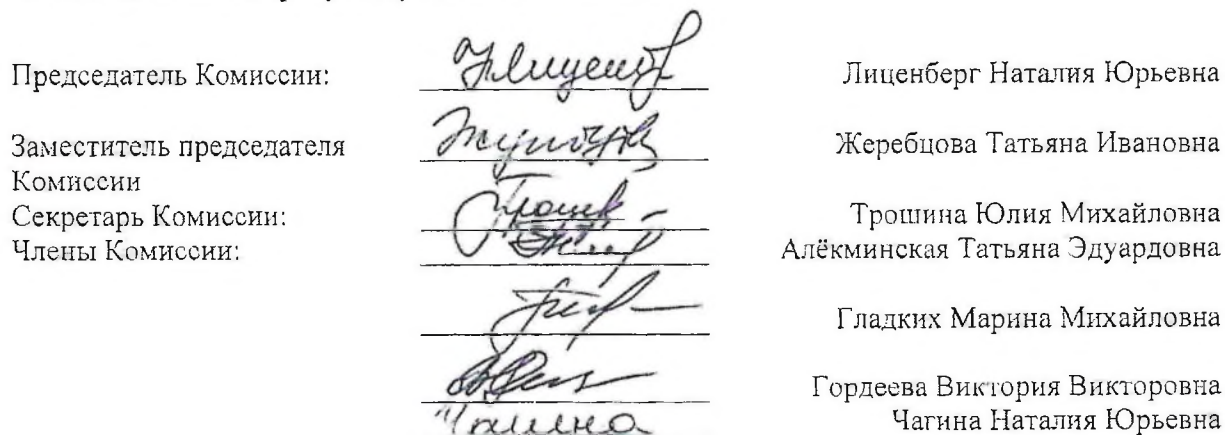 Председатель Комиссии: Лиценберг Наталия Юрьевна
Заместитель председателя Жеребцова Татьяна Ивановна
Комиссии
Секретарь Комиссии: Трошина Юлия Михайловна
Члены Комиссии: Алёкминская Татьяна Эдуардовна
Гладких Марина Михайловна
Гордеева Виктория Викторовна
Чагина Наталия Юрьевна